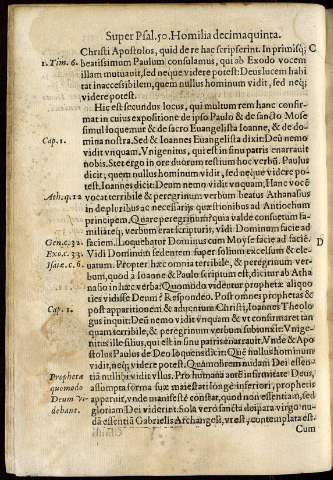 Super Psal. 50. Homilia decimaquinta.
Christi Apostolos, quid de re hac scripserint. In primisq;
1. Tim. 6. beatissimum Paulum consulamus, qui ab Exodo vocem
illam mutauit, sed neque videre potest: Deus lucem habi
tat inaccessibilem, quem nullus hominum vidit, sed neq;
videre potest.
Hic est secundus locus, qui multum rem hanc confir-
mat in cuius expositione de ipso Paulo & de sancto Mose
simul loquemur & de sacro Euangelista Ioanne, & de do-
Cap. 1. mina nostra. Sed & Ioannes Euangelista dixit: Deū nemo
vidit vnquam, Vnigenitus, qui est in sinu patris enarrauit
nobis. Stet ergo in ore duorum testium hoc verbū. Paulus
dicit; quem nullus hominum vidit, sed neque videre po-
test. Ioannis dicit: Deum nemo vidit vnquam. Hanc vocē
Ath. q. 12 vocat terribile & peregrinum verbum beatus Athanasius
in depluribus ac necessarijs quæstionibus ad Antiochum
principem. Quare peregrinum? quia valde consuetum fa-
miliareq; verbum erat scripturis, vidi Dominum facie ad
Gen. c. 32. faciem. Loquebatur Dominus cum Moyse facie ad faciē. D
Exo. c. 33. Vidi Dominum sedentem super solium excelsum & ele-
Isaiæ. c. 6. uatum. Propter hæc omnia terribile, & peregrinum ver-
bum, quod à Ioanne & Paulo scriptum est, dicitur ab Atha
nasio in hæc verba: Quomodo videntur prophetæ aliquo
ties vidisse Deum? Respondeo. Post omnes prophetas &
Cap. 1. post apparitionem & aduentum Christi, Ioannes Theolo
gus inquit: Deū nemo vidit vnquam & vt confirmaret tan
quam terribile, & peregrinum verbum subiunxit: Vnige-
nitus ille filius, qui est in sinu patris enarrauit. Vnde & Apo
stolus Paulus de Deo loquens dicit: Quē nullus hominum
vidit, neq; videre potest. Quamobrem nudam Dei essen-
Prophetæ tiā nullibi vidit vllus. Pro humana autē infirmitate Deus,
quomodo assumpta forma suæ maiestati longè inferiori, prophetis
Deum vi- apparuit, vnde manifestè constat, quod non essentiam, sed
debant. gloriam Dei viderint. Sola verò sancta deipara virgo nu-
dā essentiā Gabrielis Archangeli, vt est, contemplata est.
Cum